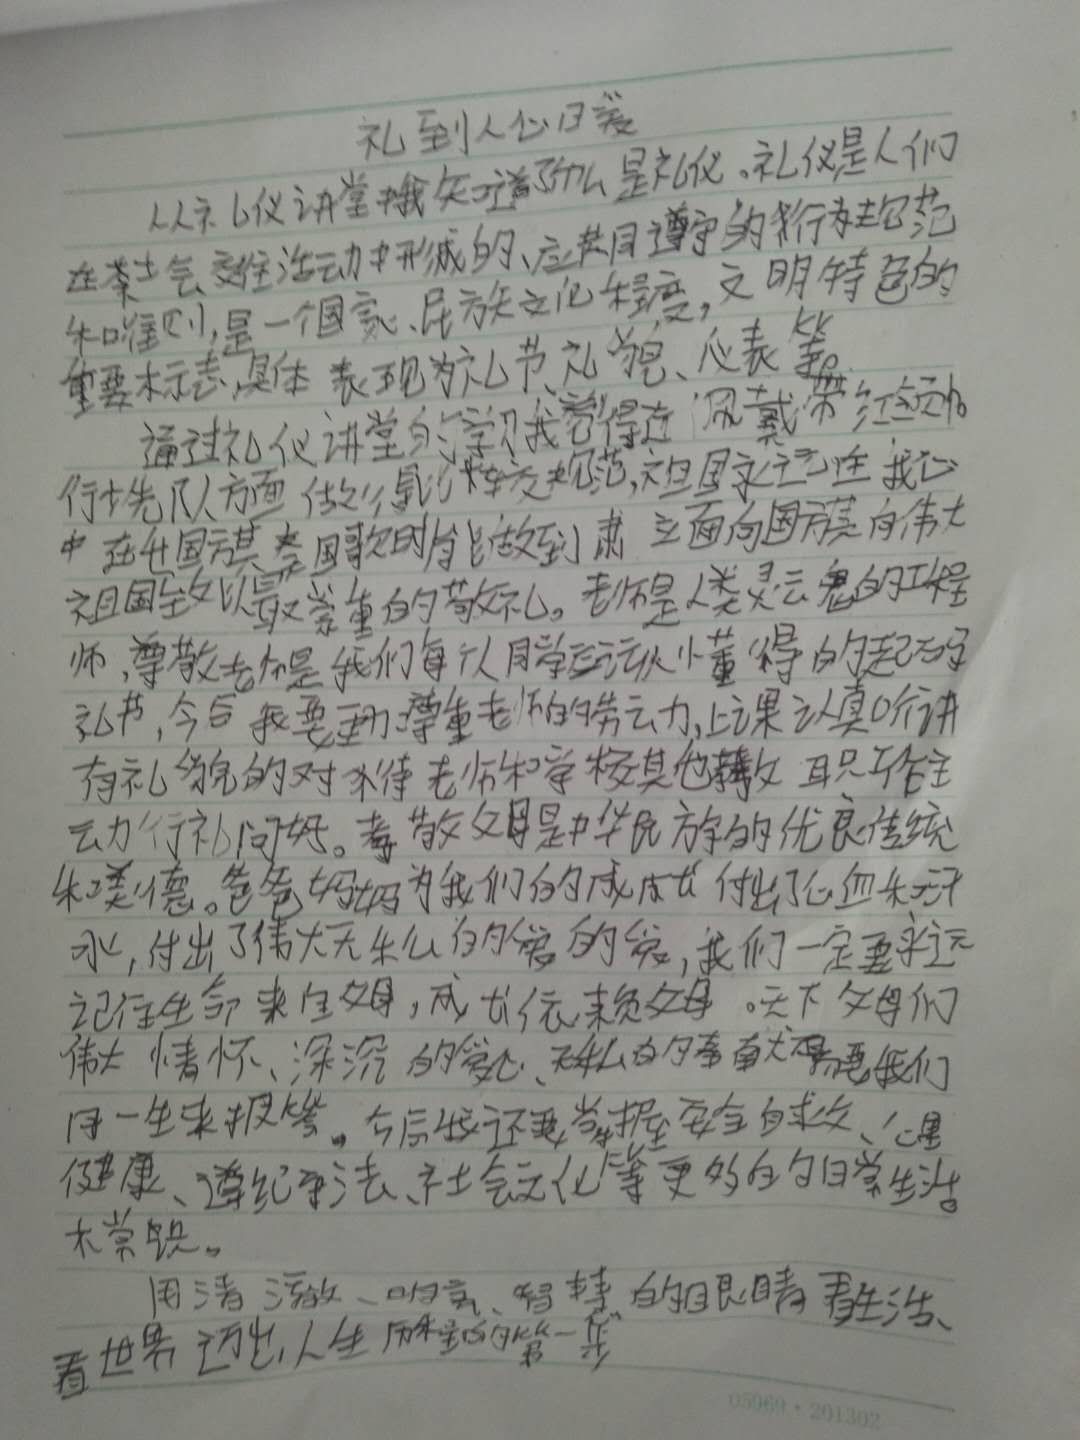 礼到人心日爱
从礼仪讲堂我知道了什么是礼仪。礼仪是人们
在社会交往活动中形成的、应共同遵守的行规范
和准则,是一个国家、民族文化程度,文明特色的
重要标志,具体表现为礼节、礼貌、仪表等。
通过礼仪讲堂的学习我懂得在佩戴带红领巾
行先队方面做规范,祖国永远在我心
中在升国旗奏国歌时能做到肃立面向国旗向伟大
祖国致以最崇重的敬礼。老师是人类灵魂的工程
师,尊敬老师是我们每个人同学应认懂得的起码
礼节,今后我要主动尊重老师的劳动,上课认真听讲
有礼貌的对待老师和学校其他教职工作主
动行礼问好。孝敬父母是中华民族的优良传统
和美德。爸爸妈妈为我们的成长付出了心血和汗
水,付出了伟大无私的爱的爱,我们一定要永远
记住生命来自父母,成长依赖父母。天下父母们
伟大情怀、深沉的爱心、无私的奉献要我们
用一生来报答。今后我还要掌握安全自救、心理
健康、遵纪守法、社会文化等更多的日常生活。
常识。
用清澈、明亮、的眼睛看生活、
看世界迈出人生历程的第一步
05969·201302